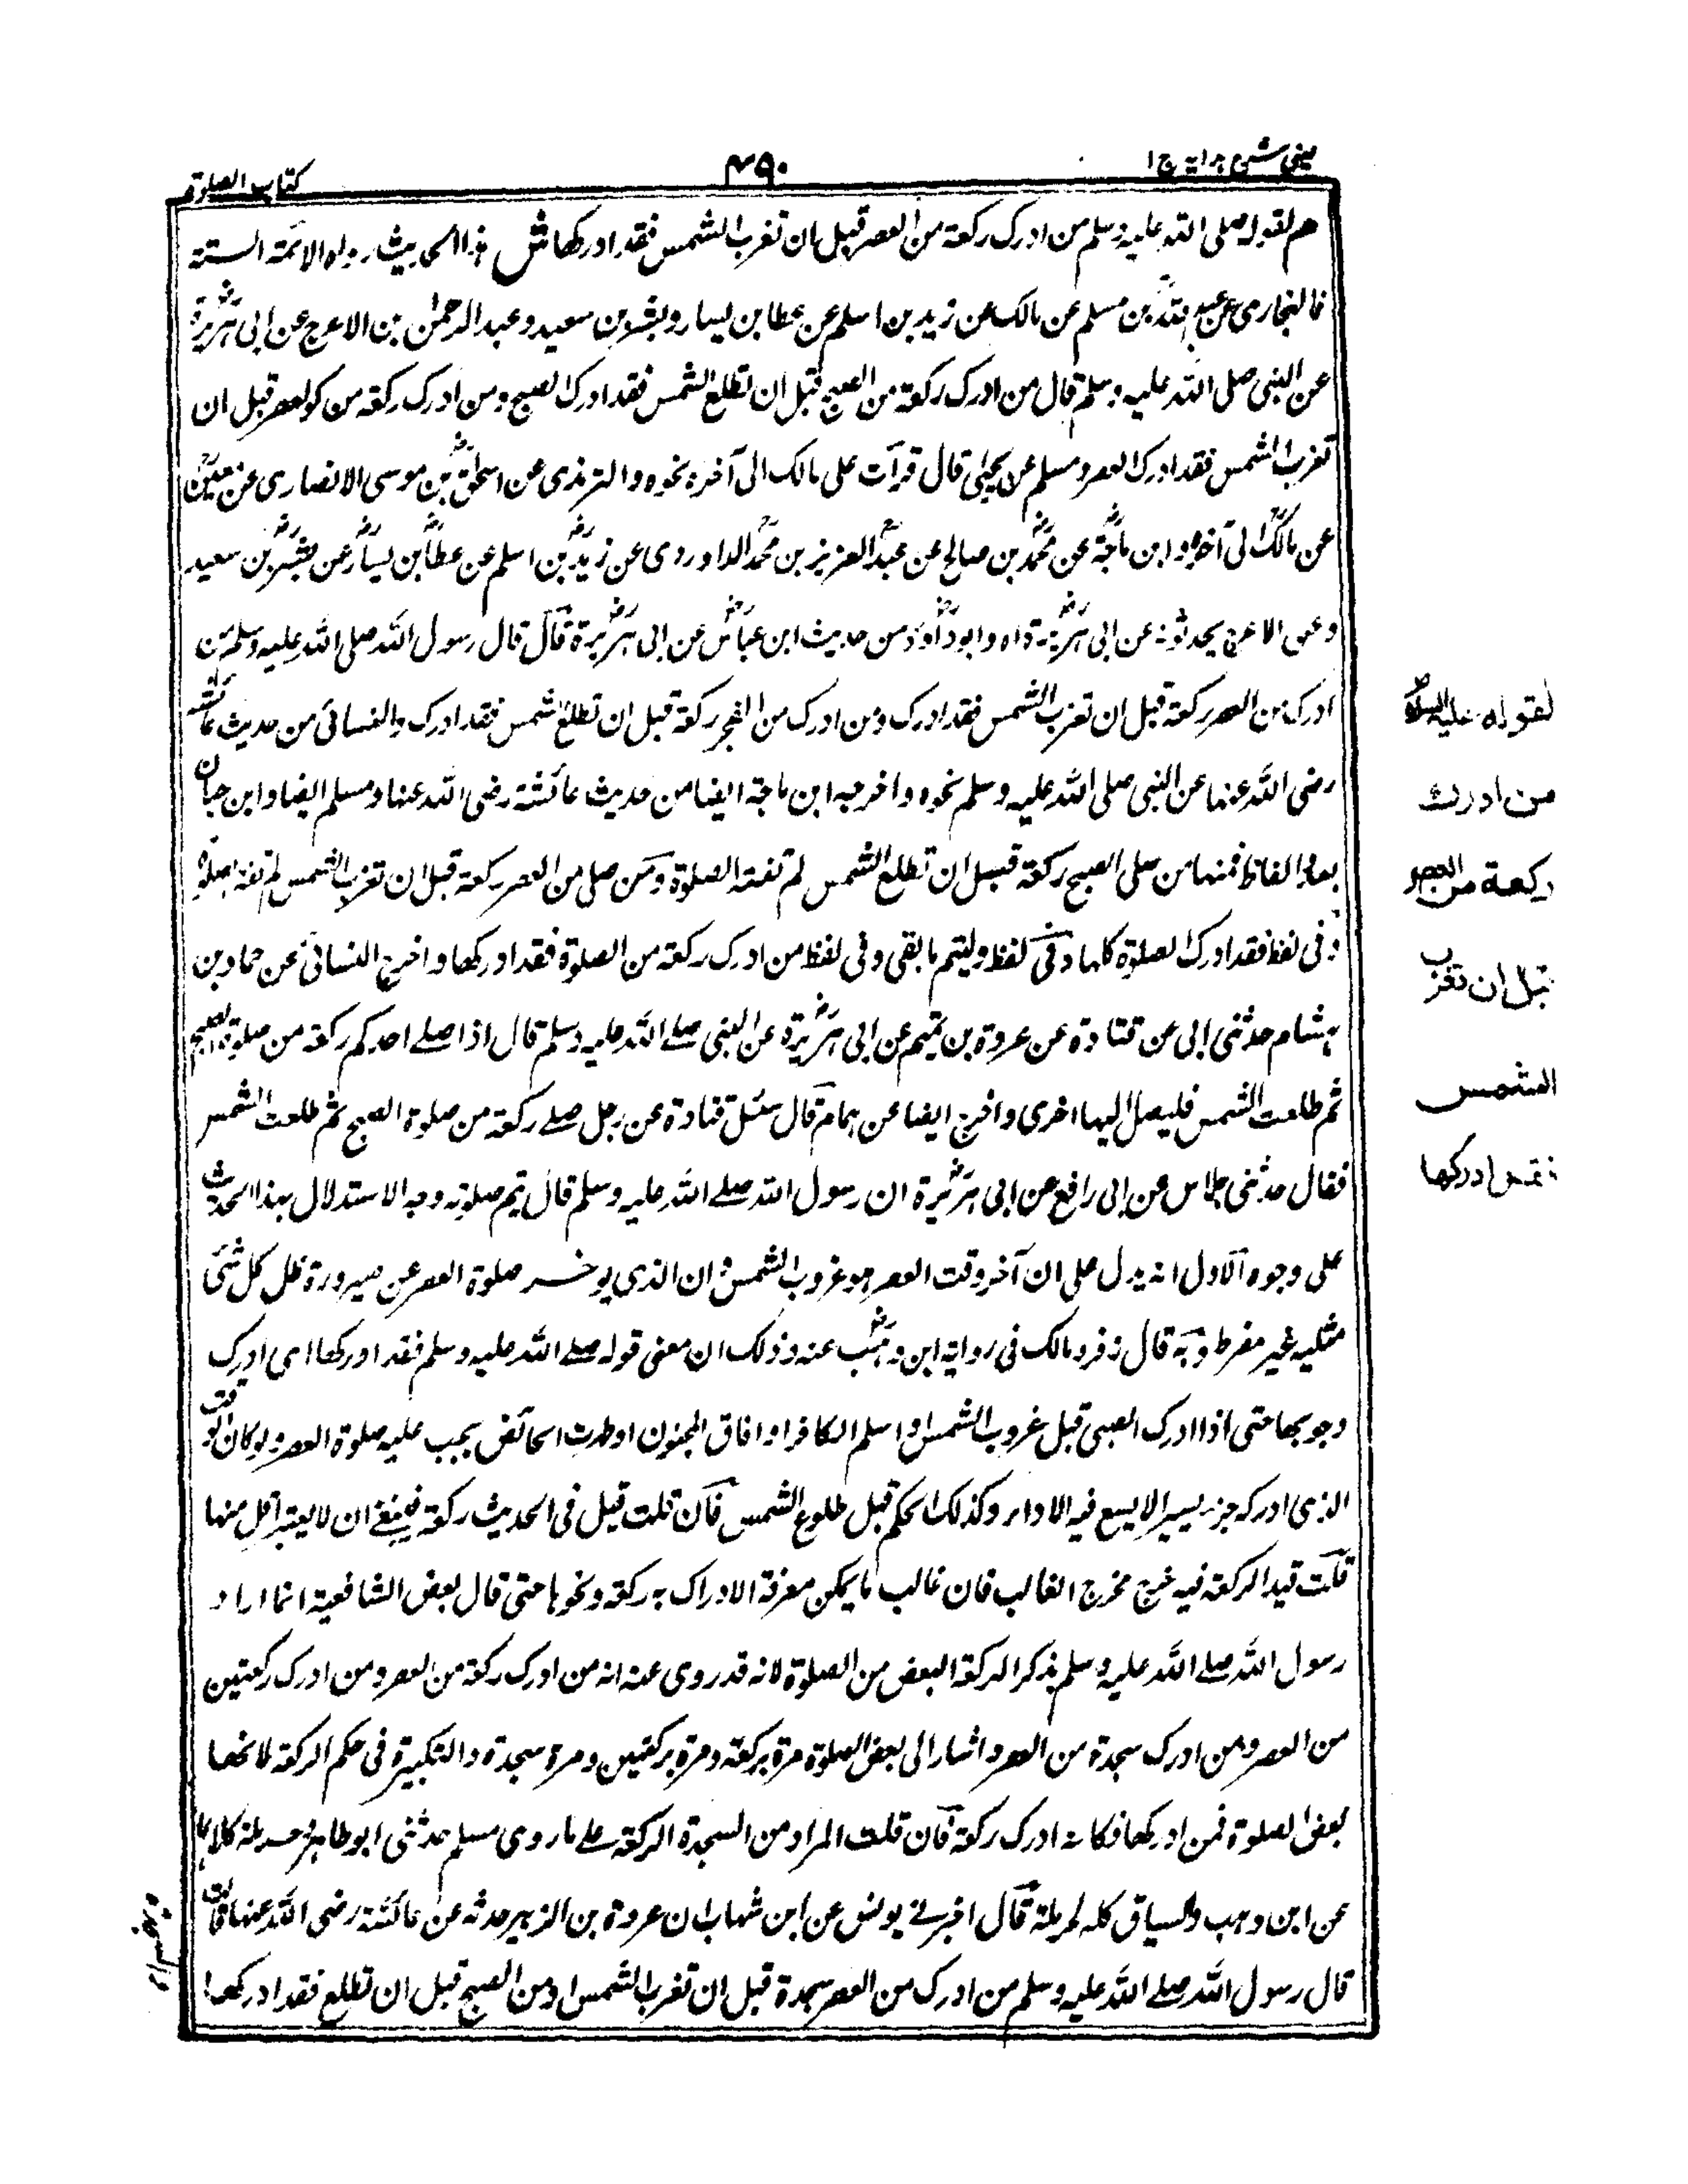 عینی شرح هدایه ج ۱
۴۹۰
کتاب الصلوة
هم لقوله صلی الله علیه وسلم من ادرک رکعة من العصر قبل ان تغرب الشمس فقد ادرکها ش هذا الحدیث رواه الائمة الستة
فالبخاری عن عبد الله بن مسلم عن مالک عن زید بن اسلم عن عطا بن یسار وبشر بن سعید وعبد الرحمٰن بن الاعرج عن ابی هریرة
عن النبی صلی الله علیه وسلم قال من ادرک رکعة من الصبح قبل ان تطلع الشمس فقد ادرک الصبح ومن ادرک رکعة من العصر قبل ان
تغرب الشمس فقد ادرک العصر ومسلم عن یحییٰ قال قرآت علی مالک الی آخره نحوه والترمذی عن اسحٰق بن موسی الانصاری عن معین
عن مالک الی آخره وابن ماجة عن محمد بن صالح عن عبد العزیز بن محمد الداوردی عن زید بن اسلم عن عطا بن یسار عن بشر بن سعید
وعن الاعرج یحدثونه عن ابی هریرة اه وابو داود من حدیث ابن عباس عن ابی هریرة قال قال رسول الله صلی الله علیه وسلم من
ادرک من العصر رکعة قبل ان تغرب الشمس فقد ادرک ومن ادرک من الفجر رکعة قبل ان تطلع الشمس فقد ادرک والنسائی من حدیث عائشة
رضی الله عنها عن النبی صلی الله علیه وسلم نحوه واخرجه ابن ماجة ایضا من حدیث عائشة رضی الله عنها ومسلم ایضا وابن حبان
بهذا الفاظ فمنها من صلی الصبح رکعة قبل ان تطلع الشمس لم تفته الصلوة ومن صلی من العصر رکعة قبل ان تغرب الشمس لم تفته الصلوة
وفی لفظ فقد ادرک الصلوة کلها وفی لفظ ولیتم ما بقی وفی لفظ من ادرک رکعة من الصلوة فقد ادرکها واخرج النسائی عن حماد بن
هشام حدثنی ابی عن قتادة عن عروة بن تمیم عن ابی هریرة عن النبی صلے الله علیه وسلم قال اذا صلے احدکم رکعة من صلوة الصبح
ثم طلعت الشمس فلیصل الیها اخری واخرج ایضا عن همام قال سئل قتادة عن رجل صلے رکعة من صلوة الصبح ثم طلعت الشمس
فقال حدثنی خلاس عن ابی رافع عن ابی هریرة ان رسول الله صلے الله علیه وسلم قال یتم صلوته وجه الاستدلال بهذا الحدیث
علی وجوه الاول انه یدل علی ان آخر وقت العصر هو غروب الشمس وان الذی یوخر صلوة العصر عن صیرورة ظل کل شئی
مثلیه غیر مفرط وبه قال زفر ومالک فی روایة ابن وهب عنه وذلک ان معنی قوله صلے الله علیه وسلم فقد ادرکها ای ادرک
وجوبها حتی اذا ادرک الصبی قبل غروب الشمس او اسلم الکافر او افاق المجنون او طهرت الحائض یجب علیه صلوة العصر ولو کان الوقت
الذی ادرکه جزء یسیر الا یسع فیه الاداء وکذلک الحکم قبل طلوع الشمس فان قلت قیل فی الحدیث رکعة فینبغی ان لا یعتبر اقل منها
قلت قید الرکعة فیه خرج مخرج الغالب فان غالب ما یمکن معرفة الادراک به رکعة ونحوها حتی قال بعض الشافعیة انما اراد
رسول الله صلے الله علیه وسلم بذکر الرکعة البعض من الصلوة لانه قد روی عنه انه من ادرک رکعة من العصر ومن ادرک رکعتین
من العصر ومن ادرک سجدة من العصر واشار الی بعض الصلوة مرة برکعة ومرة برکعتین ومرة سجدة والتکبیرة فی حکم الرکعة لانها
بعض الصلوة فمن ادرکها فکانه ادرک رکعة فان قلت المراد من السجدة الرکعة علے ما روی مسلم حدثنی ابو طاهر وحرملة کلاهما
عن ابن وهب والسیاق کله لحرملة قال اخبرنے یونس عن ابن شهاب ان عروة بن الزبیر حدثه عن عائشة رضی الله عنها قالت
قال رسول الله صلے الله علیه وسلم من ادرک من العصر سجدة قبل ان تغرب الشمس او من الصبح قبل ان تطلع فقد ادرکها
لقوله علیه السلام
من ادرك
رکعة من العصر
قبل ان تغرب
الشمس
فقد ادرکها